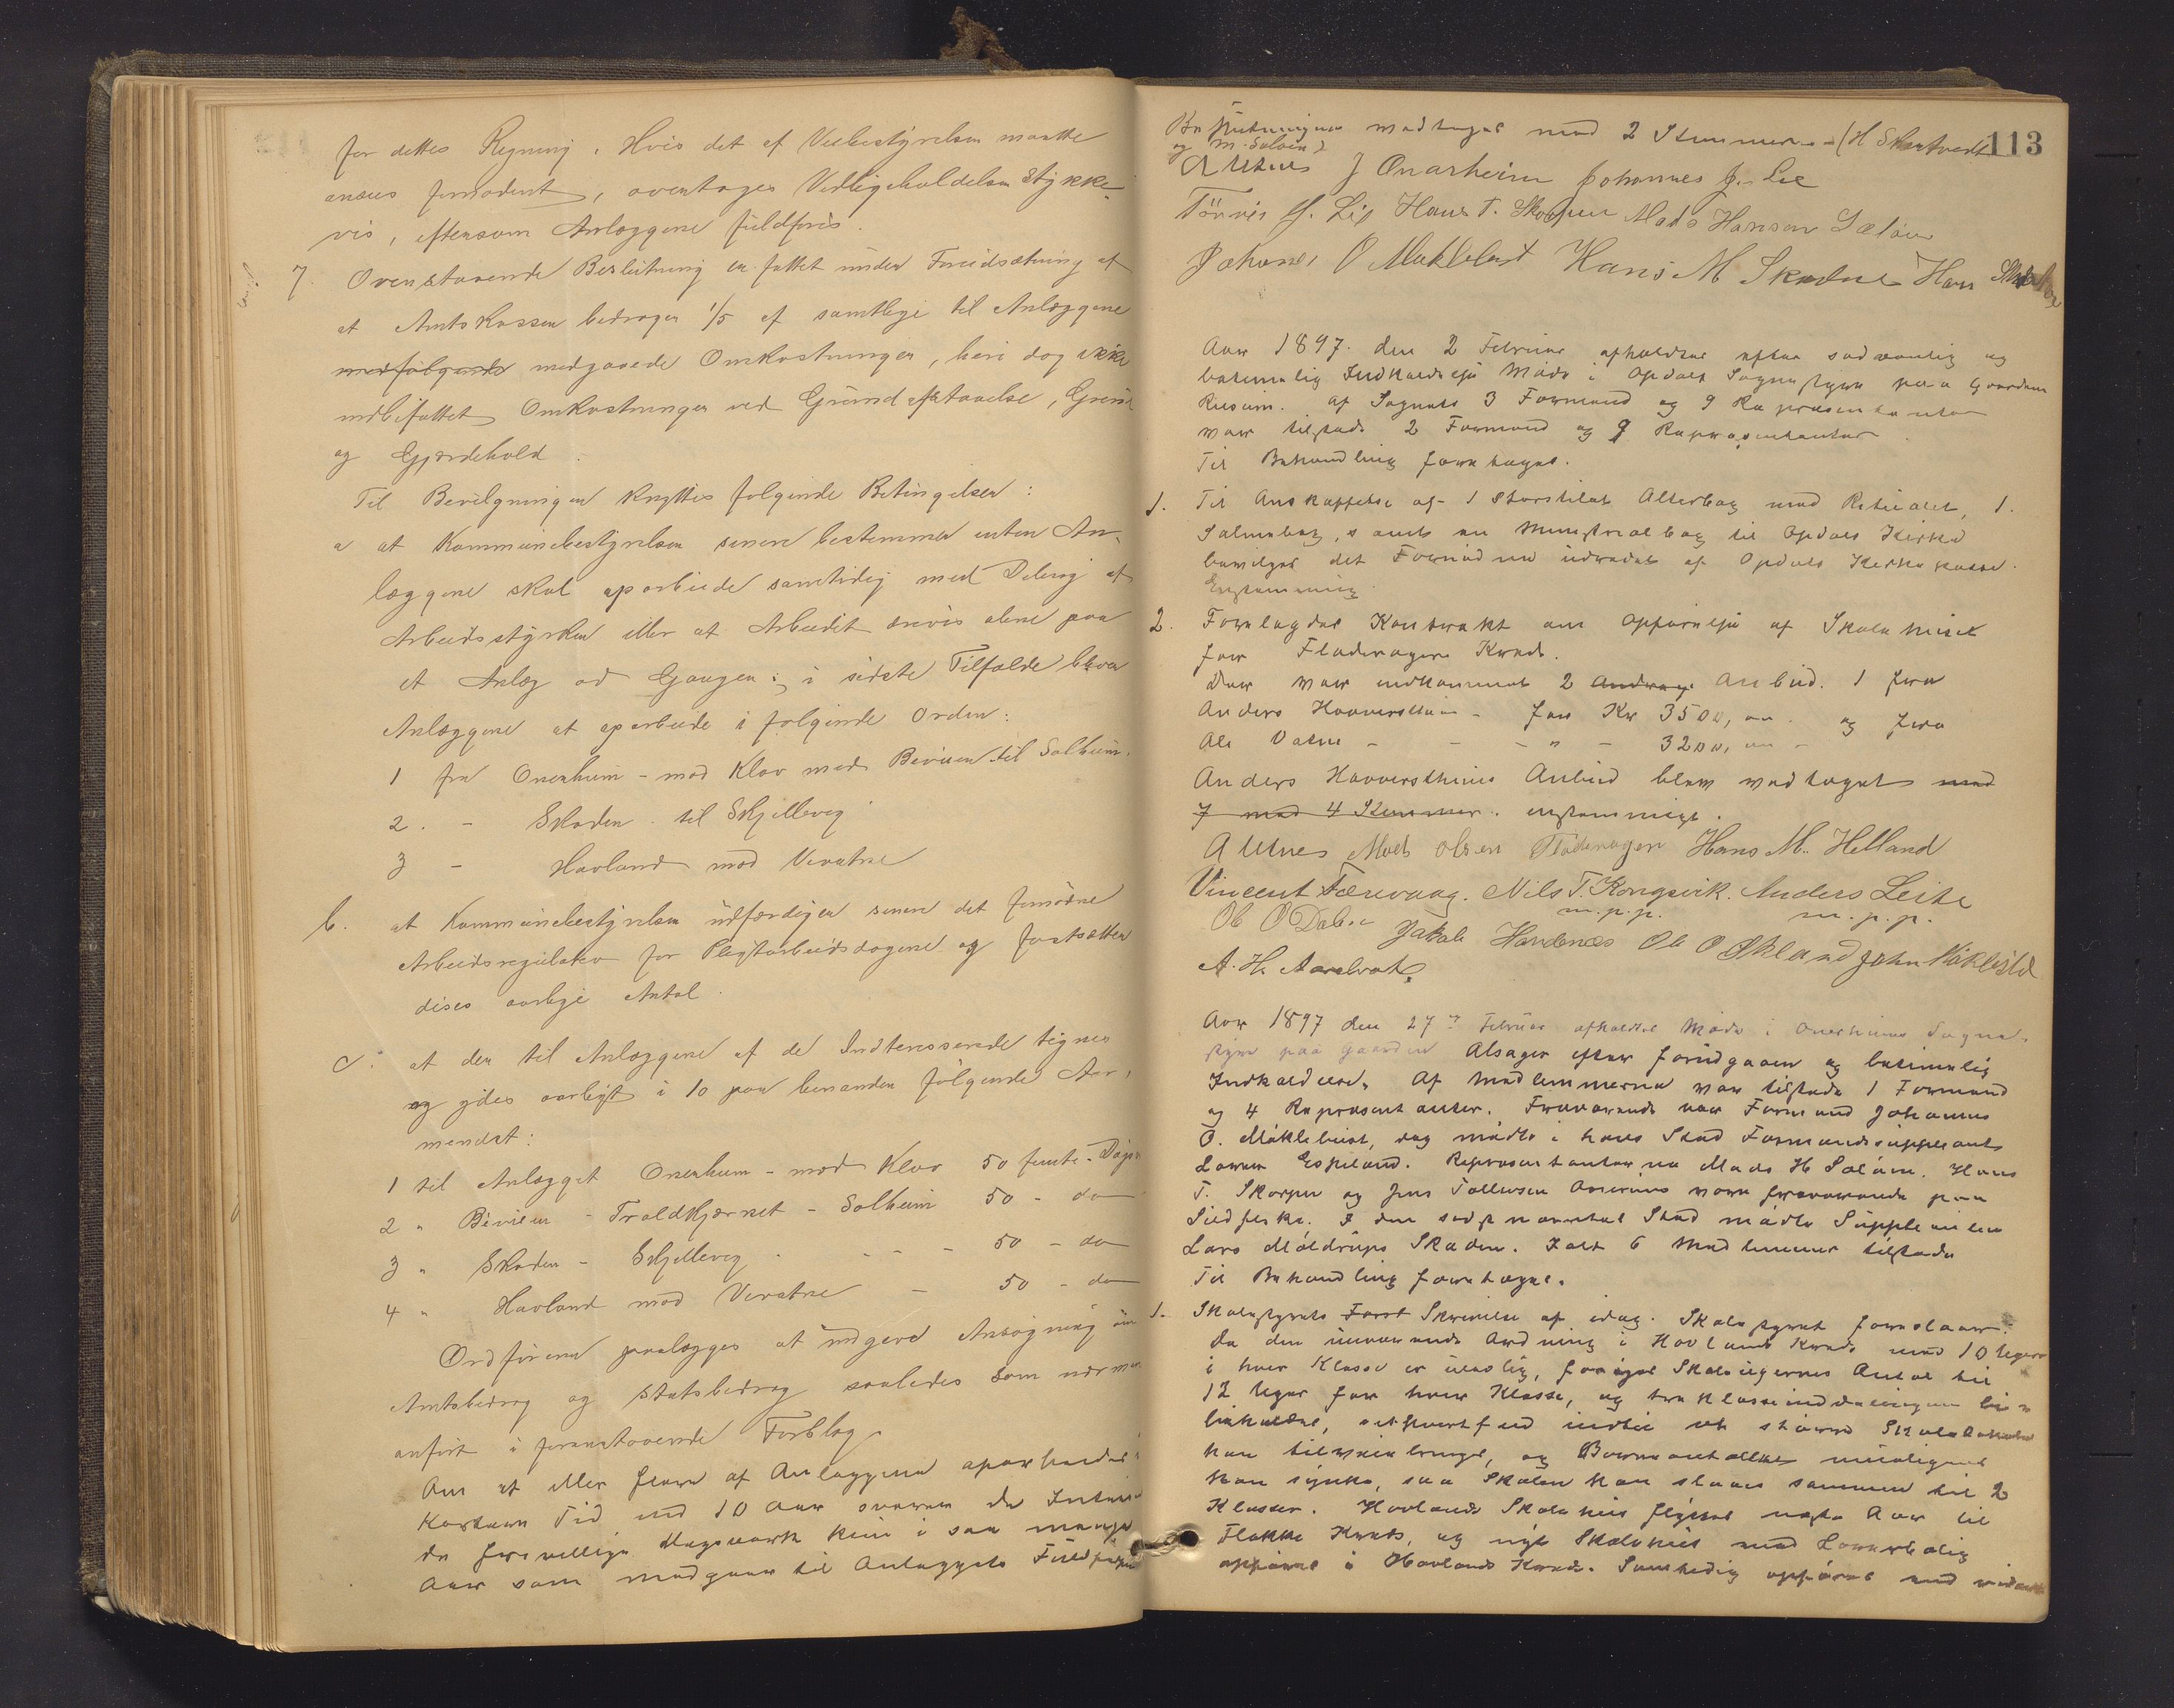 for dettes Regning. Hvis det af Veibestyrelsen maatte
ansees fornødent, overtages Vedligeholdelsen Stykke-
vis, eftersom Anlæggene fuldføres.
7. Ovenstaaende Beslutning er fattet under Forudsætning af
at Amtskassen bidrager 1/5 af samtlige til Anlæggene
medfølgende medgaaede Omkostninger, heri dog ikke
indbefattet Omkostninger ved Grundafstaaelse, Grind
og Gjærdehold.
Til Bevilgningen knyttes følgende Betingelser:
a at Kommunebestyrelsen senere bestemmer enten An-
læggene skal oparbeide samtidig med Deling af
Arbeidsstyrken eller at Arbeidet drives alene paa
et Anlæg ad Gangen; i sidste Tilfælde bliver
Anlæggene at oparbeide i følgende Orden:
1 fra Onerheim - mod Klov med Beivien til Solheim.
2. - Skaden til Skjellevig
3 - Havland mod Vevatne
b. at Kommunebestyrelsen udfærdiger senere det fornødne
Arbeidsregulativ for Pligtarbeidsdagene og fastsætter
disses aarlige Antal.
c. at der til Anlæggene af de Indteresserede tegnes
og ydes aarligt i 10 paa hinanden følgende Aar,
mindst:
1 til Anlægget Onerheim - mod Klov 50 femti - Dagsv
2 " Beivien - Troldkjærnet - Solheim 50 - do
3 " Skaden - Skjellevig - - - 50 - do
4 " Havland mod Vevatne - 50 - do
Ordføreren paalægges at indgive Ansøgning om
Amtsbidrag og Statsbidrag saaledes som nærmere
anført i foranstaaende Forslag.
Om et eller flere af Anlæggene oparbeides i
kortere Tid end 10 Aar svares de
de frivillige Dagsværk kun i saa mange
Aar som medgaar til Anlæggets
113
Beslutningen vedtages mod 2 Stemmer - (H Skartvedt
og M. Sæløen)
A Utnes J Onarheim Johannes J. Lie
Tønnes J. Lie Hans T. Skorpen Mads Hansen Sæløen
Johannes O Møklebust Hans M Skaden Hans
Aar 1897. den 2 Februar afholdtes efter sedvanlig og
betimelig Indkaldelse Møde i Opdals Sognestyre paa Gaarden
Reisem. Af Sognets 3 Formænd og 9 Repræsentanter
var tilstede 2 Formænd og 9 Repræsentanter
Til Behandling foretages.
1. Til Anskaffelse af 1 Storstilet Alterbog med Ritualet, 1.
Salmebog, samt en Ministrialbog til Opdals Kirke
bevilges det Fornødne udredet af Opdals Kirkekasse.
Enstemmig
2. Forelagdes Kontrakt om Opførelse af Skolehuset
for Fladevagens Kreds.
Der var indkommet 2 Andrag Anbud. 1 fra
Anders Haaversheim - for Kr 3500,00. og fra
Ole Vatne - - - " - 3200,00 -
Anders Haaversheims Anbud blev vedtaget med
7 mod 4 Stemmer. enstemmige.
A Utnes Mads Olsen Flatevagen Hans M. Helland
Vincent Færevaag. Nils T. Kongsvik. Anders Leite
m.p.p. m.p.p.
Ole O Dale Jakob Handenæs Ole O Økland John Møklebust
A. H. Aarebrot.
Aar 1897 den 27de Februar afholdtes Møde i Onerheims Sogne-
styre paa Gaarden Alsager efter forudgaaen og betimelig
Indkaldelse. Af Medlemmerne var tilstede 1 Formand
og 4 Repræsentanter. Fraværende var Formand Johannes
O. Møklebust, dog mødte i hans Sted Formandssuppleant
Larens Espeland. Repræsentanterne Mads H Sæløen. Hans
T. Skorpen og Jens Tollevsen Anserims vare fraværende paa
Sildfiske. I den sidstnævntes Sted mødte Suppleanten
Lars Møldrups Skaden. Ialt 6 Medlemmer tilstede
Til Behandling foretages.
1. Skolestyrets Forst Skrivelse af idag. Skolestyret foreslaar:
Da den nuværende Ordning i Hovlands Kreds med 10 Uger
i hver Klasse er uheldig, forøges Skoleugernes Antal til
12 Uger for hver Klasse, og treklasseinddelingen bi-
beholdes, indtil et større Skolelokale
kan tilveiebringes, og Børneantallet muligens
kan synke, saa Skolen kan slaaes sammen til 2
Klasser. Hovlands Skolehus flyttes næste Aar til
Flakke Kreds, og nyt Skolehus med Lærerbolig
opføres i Hovlands Kreds. Samtidig opføres